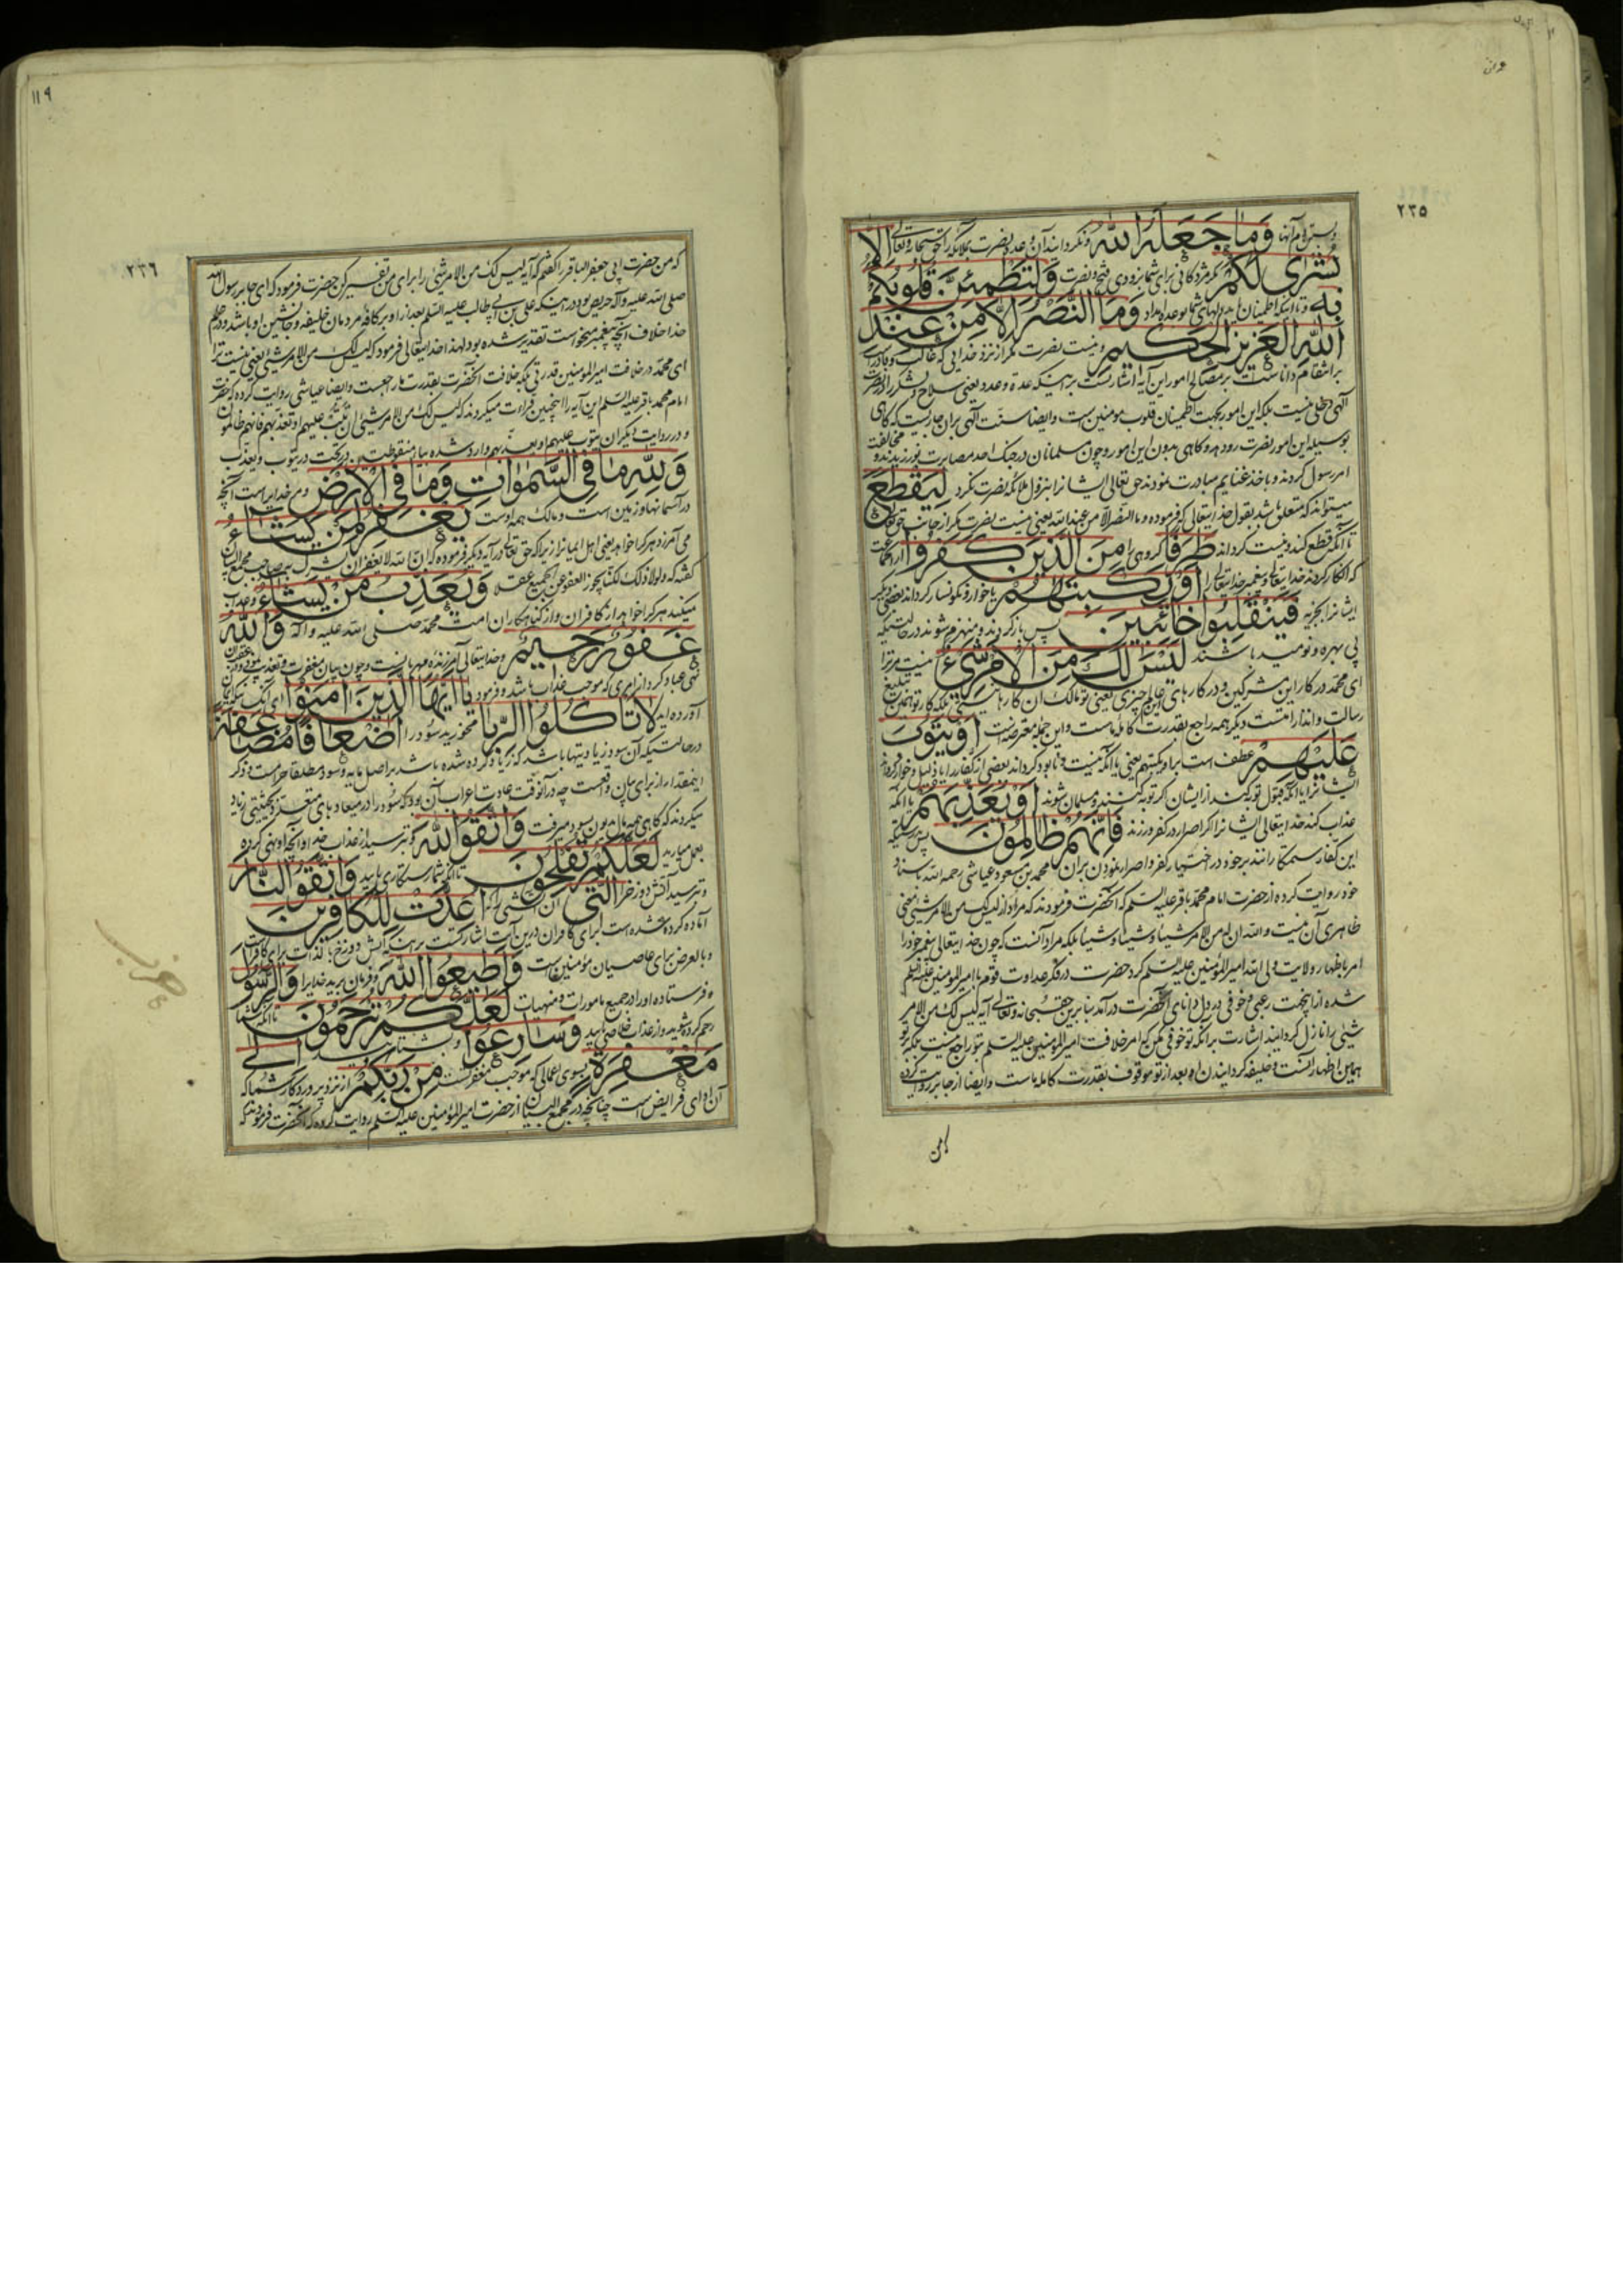 ٢٣٥
وَمَا جَعَلَهُ اللّٰهُ ونگردانید آن وعده نصرت بملائکه را حق سبحانه وتعالی اِلّا
بُشْریٰ لَکُمْ مگر مژدگانی برای شما بزودی فتح ونصرت وَلِتَطْمَئِنَّ قُلُوبُکُمْ
بِهِ وتا اینکه اطمینان یابد دلهای شما بوعده امداد وَمَا النَّصْرُ اِلّا مِنْ عِنْدِ
اللّٰهِ الْعَزِیزِ الْحَکِیمِ ونیست نصرت مگر از نزد خدایی که غالب وقادر است
بر انتقام داناست بر مصالح امور این آیه اشارتست بر اینکه عدة وعدد یعنی سلاح ولشکر را در نصرت
آلهی دخلی نیست بلکه این امور بجهت اطمینان قلوب مومنین است وایضا سنّت آلهی بران جاریست که گاهی
بوسیله این امور نصرت رو دهد وگاهی بدون این امور وچون مسلمانان در جنک احد مصابرت نورزیدند و مخالفت
امر رسول کردند وباخذ غنایم مبادرت نمودند حق تعالی ایشانرا بنزول ملائکه نصرت نکرد لِیَقْطَعَ
میتواند که متعلق باشد بقول خدایتعالی که فرموده وما النصر الا من عند الله یعنی نیست نصرت مگر از جانب حق تعالی
تا آنکه قطع کند ونیست گرداند طَرَفًا گروهی را مِنَ الَّذِینَ کَفَرُوا از جماعت
که انکار کردند خدایتعالی وپیغمبر خدایتعالی را اَوْ یَکْبِتَهُمْ یا خوار ونگونسار گرداند بعضی دیگر
ایشانرا بجزیه فَیَنْقَلِبُوا خَائِبِینَ پس بازگردند ومنهزم شوند در حالتیکه
بی بهره ونومید باشند لَیْسَ لَکَ مِنَ الْاَمْرِ شَیْءٌ نیست مر ترا
ای محمد در کار این مشرکین ودر کارهای این عالم چیزی یعنی تو مالک آن کارها نیستی بلکه کار تو همین تبلیغ
رسالت وانذار است دیگر همه راجع بقدرت کامله ماست واین جمله معترضه است اَوْ یَتُوبَ
عَلَیْهِمْ عطف است بر او یکبتهم یعنی یا آنکه نیست ونابود گرداند بعضی از کفار را یا ذلیل وخوار گرداند
ایشانرا یا آنکه قبول توبه کند از ایشان گر توبه کنند ومسلمان شوند اَوْ یُعَذِّبَهُمْ یا آنکه
عذاب کند خدایتعالی ایشانرا اگر اصرار در کفر ورزند فَاِنَّهُمْ ظَالِمُونَ پس بدرستیکه
این کفار ستمکارانند بر خود در اختیار کفر واصرار نمودن بران محمد بن مسعود عیاشی رحمه الله باسناد
خود روایت کرده از حضرت امام محمد باقر علیه السلم که آنحضرت فرمودند که مراد از لیس لک من الامر شیئ معنی
ظاهری آن نیست والله ان له من الامر شیئا وشیئا وشیئا بلکه مراد آنست که چون خدایتعالی پیغمبر خود را
امر باظهار ولایت ولی الله امیر المؤمنین علیه السلم کرد حضرت در فکر عداوت قوم با امیر المومنین علیه السلم
شده از اینجهت رعبی وخوفی در دل دانای آنحضرت درآمد بنا برین حق سبحانه وتعالی آیه لیس لک من الامر
شیئ را نازل گردانید اشارت برانکه تو خوفی مکن که امر خلافت امیر المومنین علیه السلم بتو راجع نیست بلکه بر تو
همین اظهار آنست وخلیفه گردانیدن او بعد از تو موقوف بقدرت کامله ماست وایضا از جابر روایت کرده
که من
١١٩
٢٣٦
که من حضرت ابی جعفر الباقر را گفتم که آیه لیس لک من الامر شیئ را برای من تفسیر کن حضرت فرمود که ای جابر رسول الله
صلی الله علیه وآله حریص بود در اینکه علی بن ابی طالب علیه السلم بعد از او بر کافه مردمان خلیفه وجانشین او باشد ودر علم
خدا خلاف آنچه پیغمبر میخواست تقدیر شده بود لهذا خدایتعالی فرمود که لیس لک من الامر شیئ یعنی نیست ترا
ای محمد در خلافت امیر المومنین قدرتی بلکه خلافت آنحضرت بقدرت ما راجعست وایضا عیاشی روایت کرده که حضرت
امام محمد باقر علیه السلم این آیه را اینچنین قراءت میکردند که لیس لک من الامر شیئ ان تتب علیهم او تعذبهم فانهم ظالمون
ودر روایت دیگر ان یتوب علیهم او یعذبهم وارد شده بیاء منقوطتین در تحت در یتوب ویعذب
وَلِلّٰهِ مَا فِی السَّمٰوَاتِ وَمَا فِی الْاَرْضِ ومر خدایراست آنچه
در آسمانها وزمین است ومالک همه اوست یَغْفِرُ لِمَنْ یَشَاءُ
می آمرزد هر کرا خواهد یعنی اهل ایمانرا زیرا که حق تعالی در آیه دیگر فرموده که ان الله لا یغفر ان یشرک به صاحب مجمع البیان
گفته که ولولا ذلک لکنا نجوز العفو عن الجمیع عقلا وَیُعَذِّبُ مَنْ یَشَاءُ وعذاب
میکند هر کرا خواهد از کافران واز گناهکاران امت محمد صلی الله علیه واله وَاللّٰهُ
غَفُورٌ رَحِیمٌ وخدایتعالی آمرزنده مهربانست وچون بیان مغفرت وتعذیب نمود
نهی عباد کرد از امری که موجب عذاب باشد وفرمود یَا اَیُّهَا الَّذِینَ اٰمَنُوا ای آنکسانیکه ایمان
آورده اید لَا تَاْکُلُوا الرِّبَا مخورید سود را اَضْعَافًا مُضَاعَفَةً
در حالتیکه آن سود زیادیتها باشد که زیاد کرده شده باشد بر اصل مایه وسود مطلقا حرامست وذکر
اینمقدار از برای بیان واقعست چه در آنوقت عادت اعراب آن بود که سود را در میعادهای متعدده بحیثیتی زیاد
میکردند که گاهی همه مال مدیون بسود میرفت وَاتَّقُوا اللّٰهَ وبترسید از عذاب خدا وآنچه او نهی کرده
بعمل میارید لَعَلَّکُمْ تُفْلِحُونَ تا آنکه شما رستگاری یابید وَاتَّقُوا النَّارَ
وبترسید آتش دوزخ را الَّتِی آن آتشی را که اُعِدَّتْ لِلْکَافِرِینَ
آماده کرده شده است برای کافران درین آیت اشارتست بر اینکه آتش دوزخ بالذات برای کافرانست
وبالعرض برای عاصیان مؤمنین است وَاَطِیعُوا اللّٰهَ وفرمان برید خدا را وَالرَّسُولَ
وفرستاده او را در جمیع مامورات ومنهیات لَعَلَّکُمْ تُرْحَمُونَ تا آنکه شما
رحم کرده شوید واز عذاب خلاصی یابید وَسَارِعُوا وبشتابید اِلیٰ
مَغْفِرَةٍ بسوی اعمالی که موجب مغفرتست مِنْ رَبِّکُمْ از نزد پروردگار شما که
آن ادای فرایض است چنانچه در مجمع البیان از حضرت امیر المؤمنین علیه السلم روایت کرده که آنحضرت فرمود که